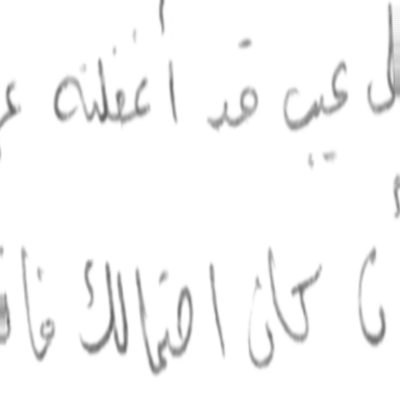 ل عيب قد أغفلته ع
ن كان احتمالك فا